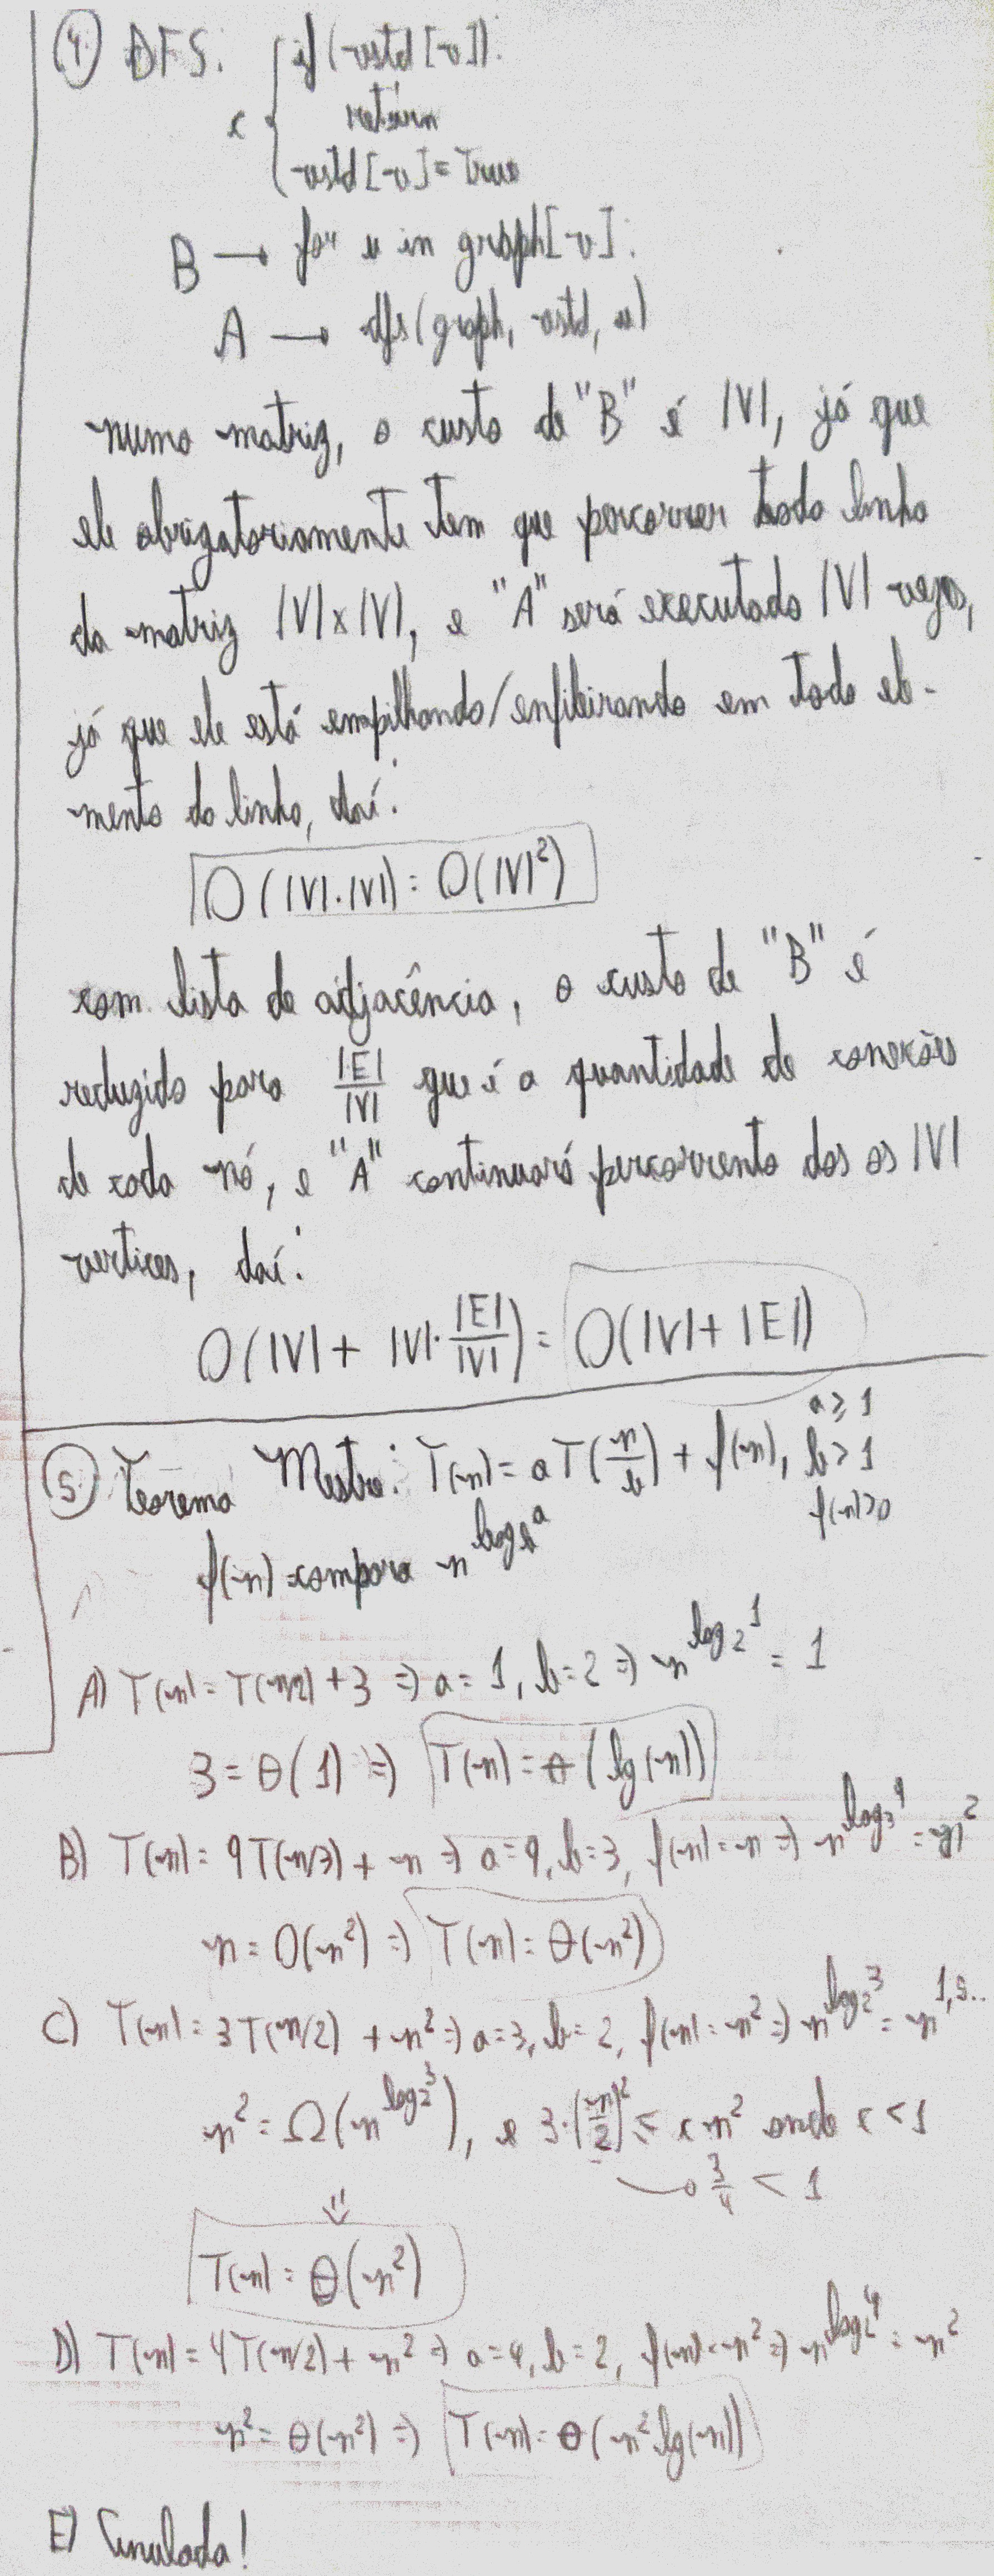 4) DFS: if (vstd[v]):
c { return
vstd[v] = True
B → for u in graph[v]:
A → dfs(graph, vstd, u)
numa matriz, o custo de "B" é |V|, já que
ele obrigatoriamente tem que percorrer toda linha
da matriz |V|x|V|, e "A" será executado |V| vezes,
já que ele está empilhando/enfileirando em todo ele-
mento da linha, daí:
O(|V|.|V|) = O(|V|²)
com lista de adjacência, o custo de "B" é
reduzido para |E|/|V| que é a quantidade de conexões
de cada nó, e "A" continuará percorrento dos os |V|
vertices, daí:
O(|V| + |V|·|E|/|V|) = O(|V| + |E|)
5) Teorema Mestre: T(n) = aT(n/b) + f(n), a ≥ 1
b > 1
f(n) > 0
f(n) compara n^log_b a
A) T(n) = T(n/2) + 3 => a = 1, b = 2 => n^log_2 1 = 1
3 = θ(1) => T(n) = θ(lg(n))
B) T(n) = 9T(n/3) + n => a = 9, b = 3, f(n) = n => n^log_3 9 = n²
n = O(n²) => T(n) = θ(n²)
C) T(n) = 3T(n/2) + n² => a = 3, b = 2, f(n) = n² => n^log_2 3 = n^1,5..
n² = Ω(n^log_2 3), e 3·(n/2)² ≤ c n² onde c < 1
→ 3/4 < 1
⇓
T(n) = θ(n²)
D) T(n) = 4T(n/2) + n² => a = 4, b = 2, f(n) = n² => n^log_2 4 = n²
n² = θ(n²) => T(n) = θ(n² lg(n))
E)